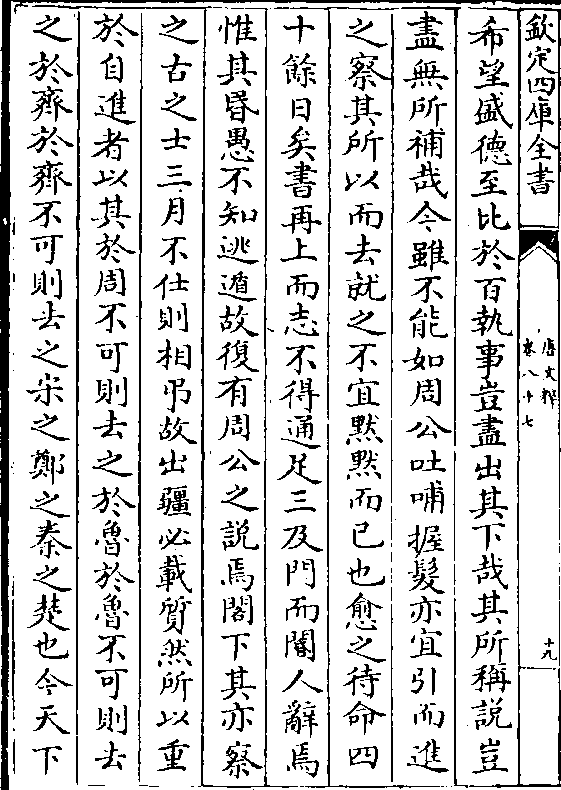 欽定四庫全書
唐文粹
卷八十七
十九
希望盛德至比於百執事豈盡出其下哉其所稱說豈
盡無所補哉今雖不能如周公吐哺握髮亦宜引而進
之察其所以而去就之不宜默默而已也愈之待命四
十餘日矣書再上而志不得通足三及門而閽人辭焉
惟其昬愚不知逃遁故復有周公之説焉閤下其亦察
之古之士三月不仕則相弔故出疆必載質然所以重
於自進者以其於周不可則去之於魯於魯不可則去
之於齊於齊不可則去之宋之鄭之秦之楚也今天下